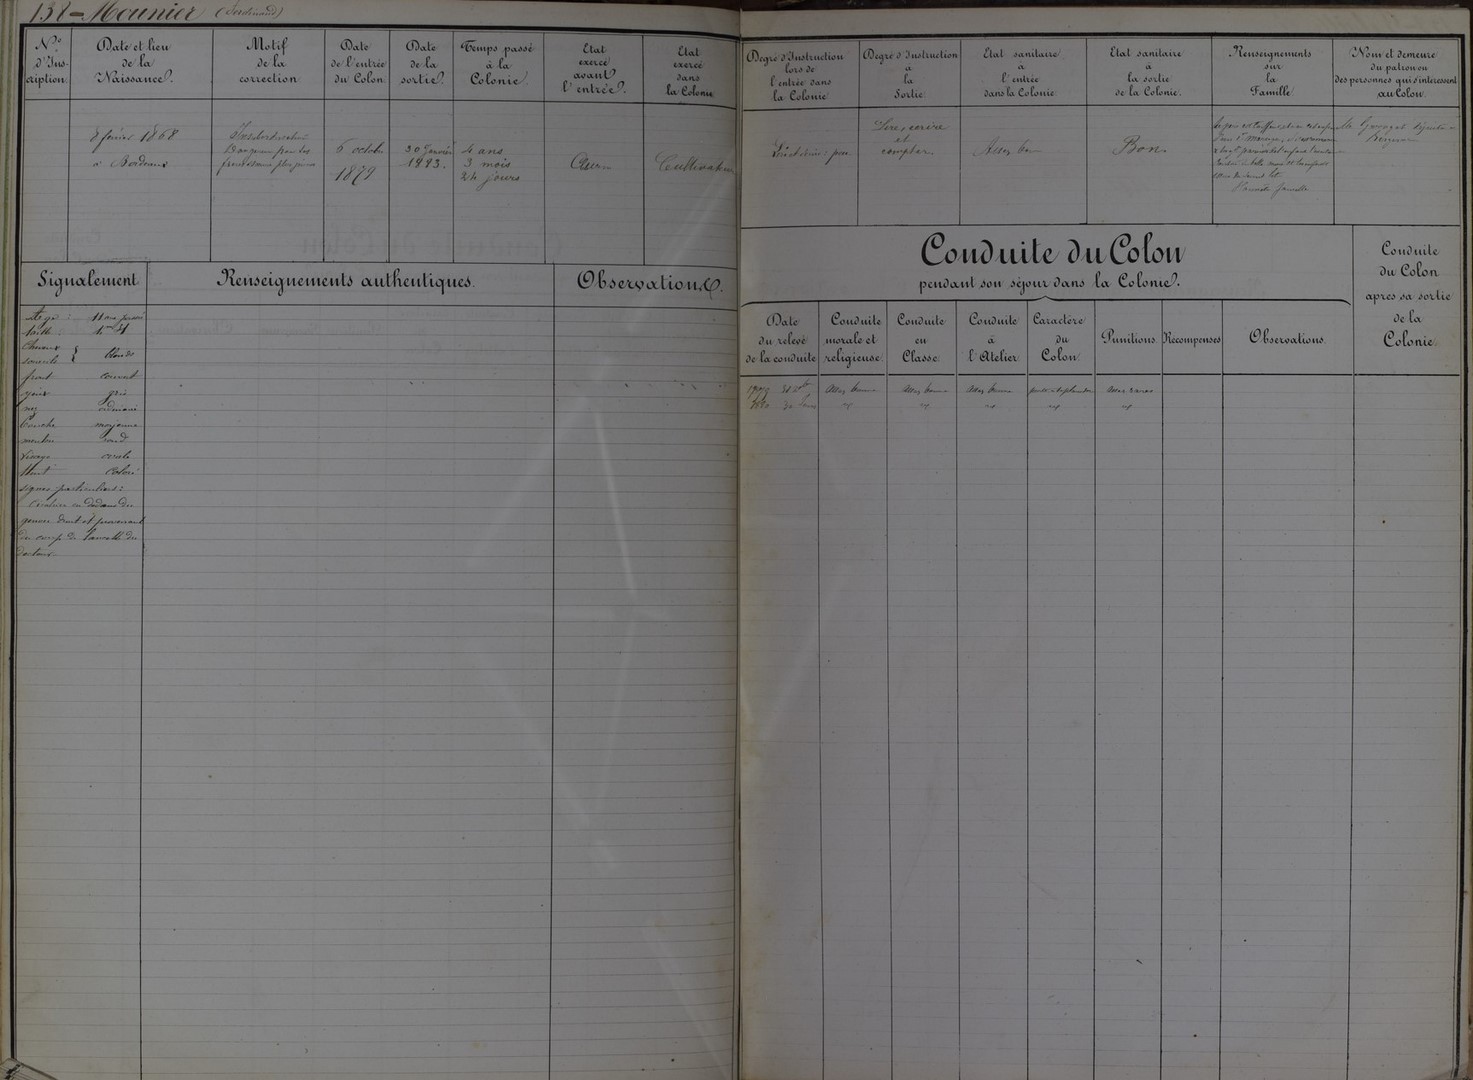 138 - Mounier (Ferdinand)
Nº
d'Ins-
cription
Date et lieu
de la
Naissance.
Motif
de la
correction
Date
de l'entrée
du Colon
Date
de la
sortie.
Temps passé
à la
Colonie.
Etat
exercé
avant
l'entrée.
Etat
exercé
dans
la Colonie
8 février 1868
à Bordeaux
Insubordination
6 octobre
1879
30 Janvier
1883.
4 ans
3 mois
24 jours
Aucun
Cultivateur
Signalement
Renseignements authentiques
Observations.
Age : 11 ans passés
taille : 1m 31
Cheveux
sourcils } blonds
front couvert
yeux gris
nez ordinaire
bouche moyenne
menton rond
visage ovale
teint coloré
signes particuliers :
Degré d'Instruction
lors de
l'entrée dans
la Colonie
Degré d'Instruction
à
la
Sortie
Etat sanitaire
à
l'entrée
dans la Colonie
Etat sanitaire
à
la sortie
de la Colonie.
Renseignements
sur
la
Famille
Nom et demeure
du patron ou
des personnes qui s'intéressent
au Colon.
Lire, écrire
et
compter
Assez bon
Bon
Conduite du Colon
pendant son séjour dans la Colonie.
Conduite
du Colon
apres sa sortie
de la
Colonie
Date
du relevé
de la conduite
Conduite
morale et
religieuse
Conduite
en
Classe
Conduite
à
l'Atelier
Caractère
du
Colon
Punitions
Recompenses
Observations
1879 31 Xbre Assez bonne Assez bonne Assez bonne assez rares
1880 30 Juin